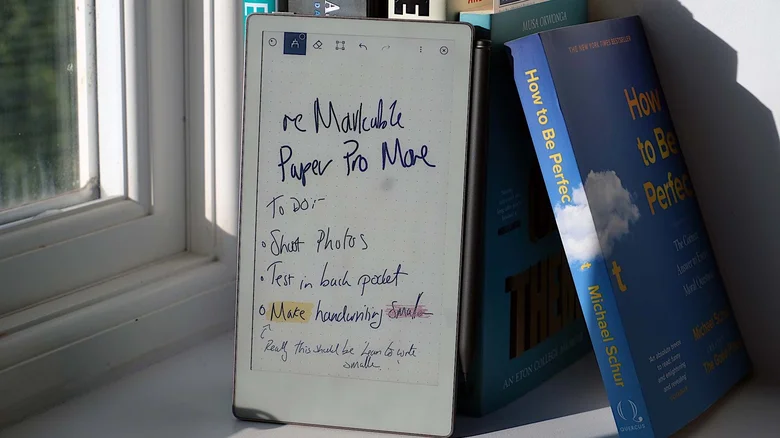 re Markable
Paper Pro Move
To DO:-
• Shoot Photos
• Test in back pocket
• Make handwriting Small
Really this should be learn to write
smaller.
MUSA OKWONGA
AN ETON COLLEGE
THE NEW YORK TIMES BESTSELLER
How
to Be
Perfect
The Correct
Answer to Every
Moral Question
Michael Schur
How to Be Perfect
Michael Schur
QUERCUS